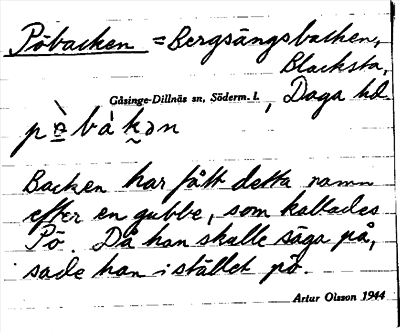 Pöbacken = Bergsängsbacken,
Blacksta,
Gåsinge-Dillnäs sn, Söderm. l. , Daga hd
pö̀bàkən
Backen har fått detta namn
efter en gubbe, som kallades
Pö. Då han skulle säga på,
sade han i stället pö.
Artur Olsson 1944